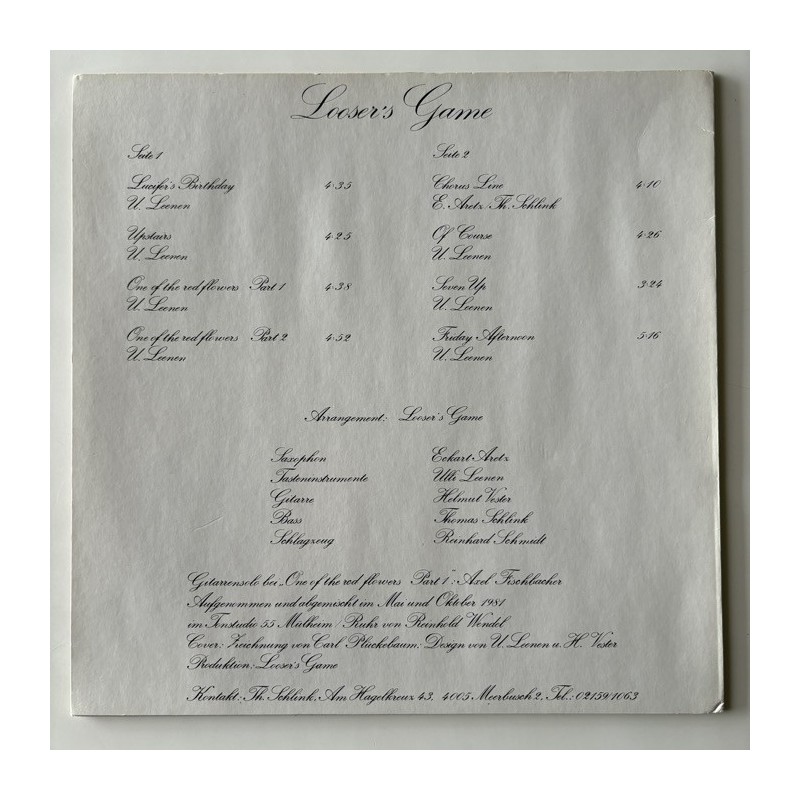 Looser's Game
Seite 1
Lucifer's Birthday 4:35
U. Leenen
Upstairs 4:25
U. Leenen
One of the red flowers Part 1 4:38
U. Leenen
One of the red flowers Part 2 4:52
U. Leenen
Seite 2
Chorus Line 4:10
E. Aretz/Th. Schlink
Of Course 4:26
U. Leenen
Seven Up 3:24
U. Leenen
Friday Afternoon 5:16
U. Leenen
Arrangement: Looser's Game
Saxophon Eckart Aretz
Tasteninstrumente Ulli Leenen
Gitarre Helmut Vester
Bass Thomas Schlink
Schlagzeug Reinhard Schmidt
Gitarrensolo bei „One of the red flowers Part 1": Axel Fischbacher
Aufgenommen und abgemischt im Mai und Oktober 1981
im Tonstudio 55 Mülheim/Ruhr von Reinhold Wendel
Cover: Zeichnung von Carl Pluckebaum; Design von U. Leenen u. H. Vester
Produktion: Looser's Game
Kontakt: Th. Schlink, Am Hagelkreuz 43, 4005 Meerbusch 2, Tel.: 02159/1063